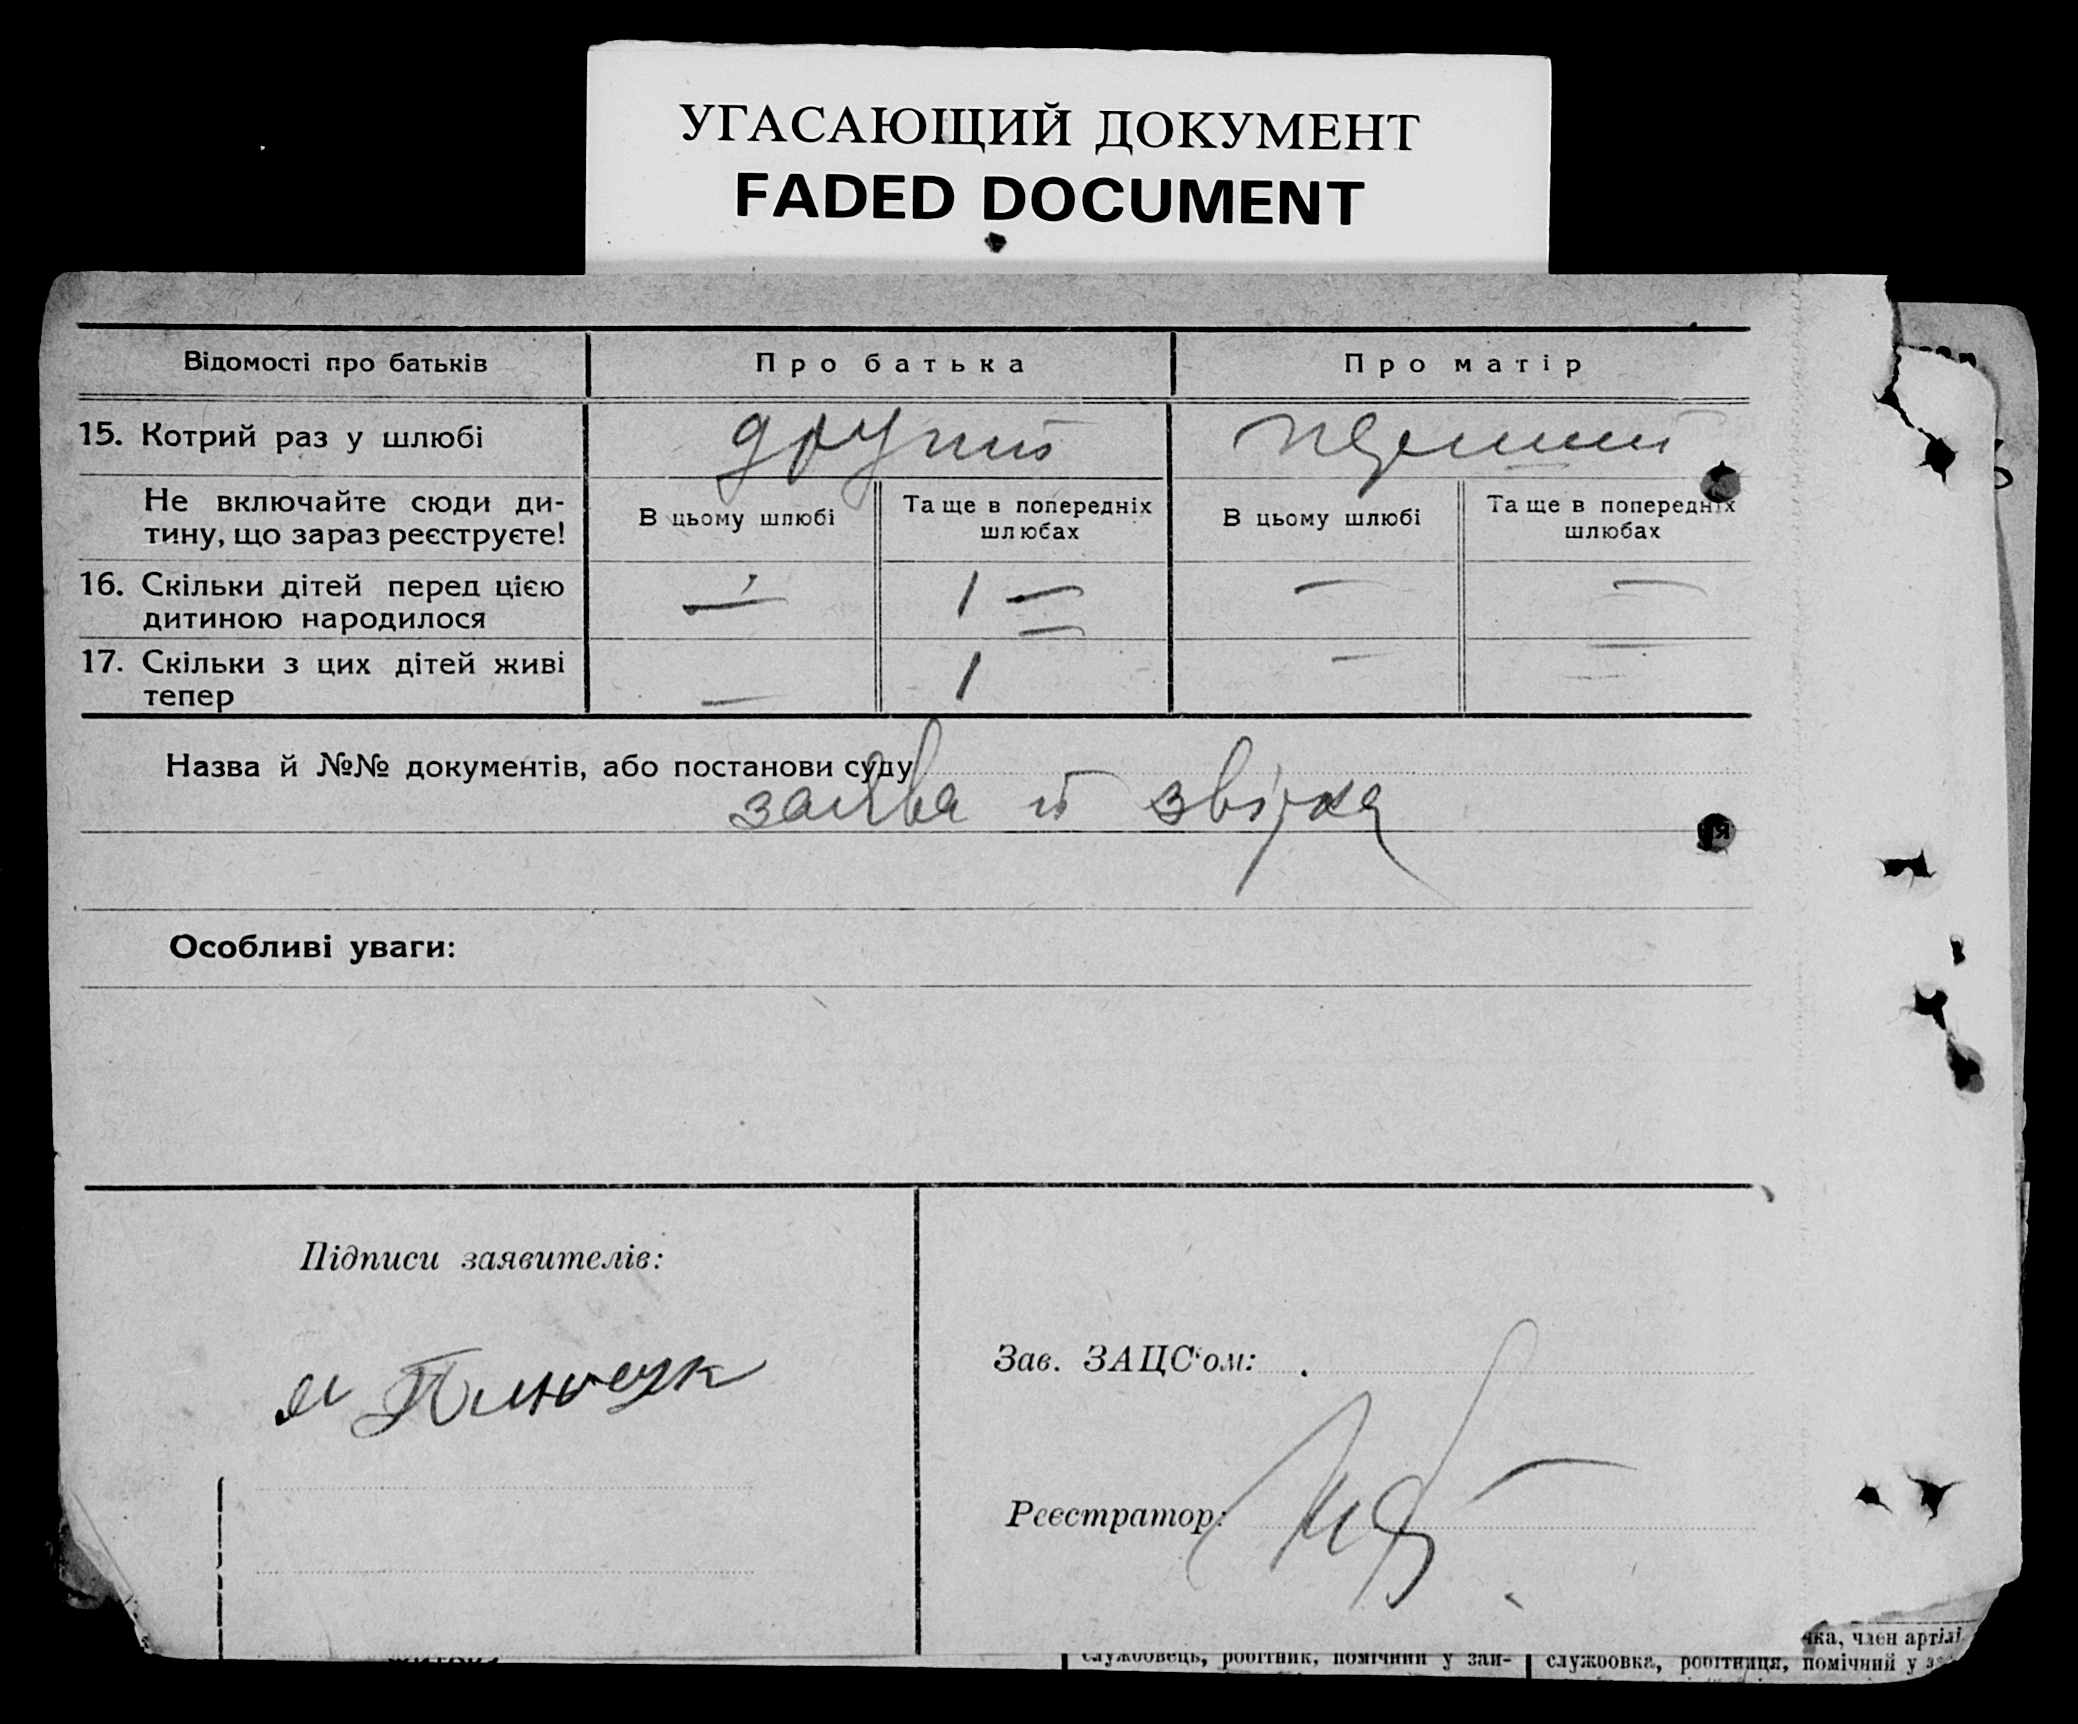 УГАСАЮЩИЙ ДОКУМЕНТ
FADED DOCUMENT
Відомості про батьків
Про батька
Про матір
15. Котрий раз у шлюбі
другий
перший
Не включайте сюди ди-
тину, що зараз реєструєте!
В цьому шлюбі
Та ще в попередніх
шлюбах
В цьому шлюбі
Та ще в попередніх
шлюбах
16. Скільки дітей перед цією
дитиною народилося
—
1 —
—
—
17. Скільки з цих дітей живі
тепер
—
1
—
—
Назва й №№ документів, або постанови суду
заява й звірка
Особливі уваги:
Підписи заявителів:
Зав. ЗАЦС'ом:
Реєстратор:
чка, член артілі
службовець, робітник, помічний у зан-
службовка, робітниця, помічний у з